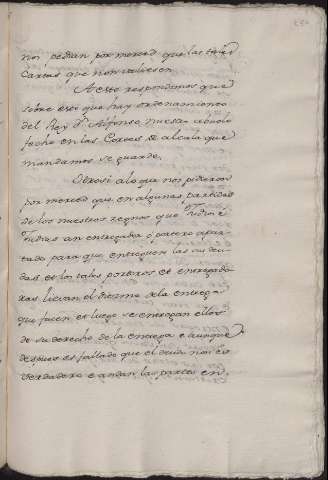 nos pedian por merced que las tales
Cartas que non valiesen
A esto respondemos que
sobre esto que hay ordenamiento
del Rey Dn Alfonso nuestro abuelo
fecho en las Cortes de alcala que
mandamos se guarde.
Otrosi alo que nos pidieron
por merced que en algunas partidas
de los nuestros regnos que Judios e
Judias an entregador o portero apar-
tado para que entreguen las sus deu-
das e los tales porteros e entregado-
res lievan el diezmo de la entrega
que facen e luego se entregan ellos
de su derecho de la entrega e aunque
despues es fallado que el deudo non es
verdadero e andan las partes en